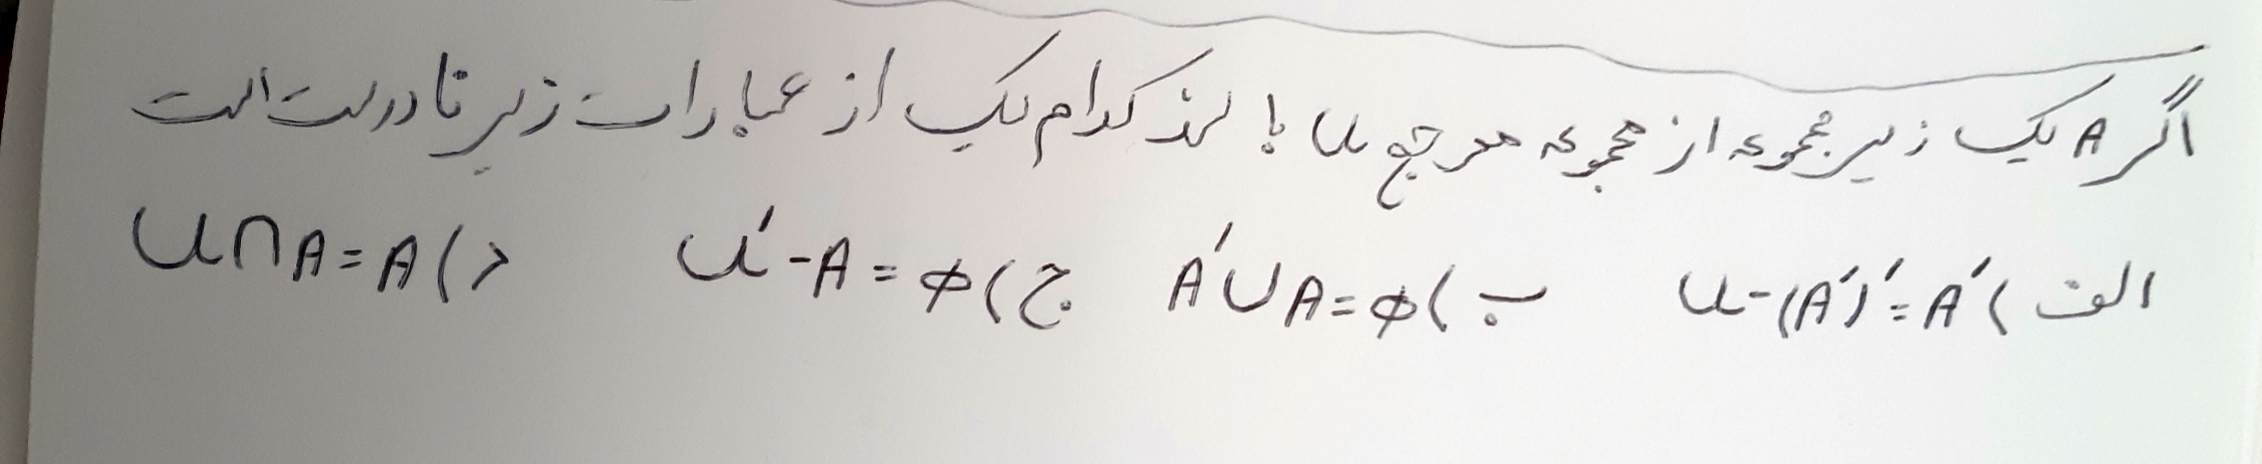 اگر A یک زیر مجموعه از مجموعه مرجع U باشد کدام یک از عبارات زیر نادرست است
الف) U-(A')'=A' ب) A'∪A=φ ج) U'-A=φ د) U∩A=A